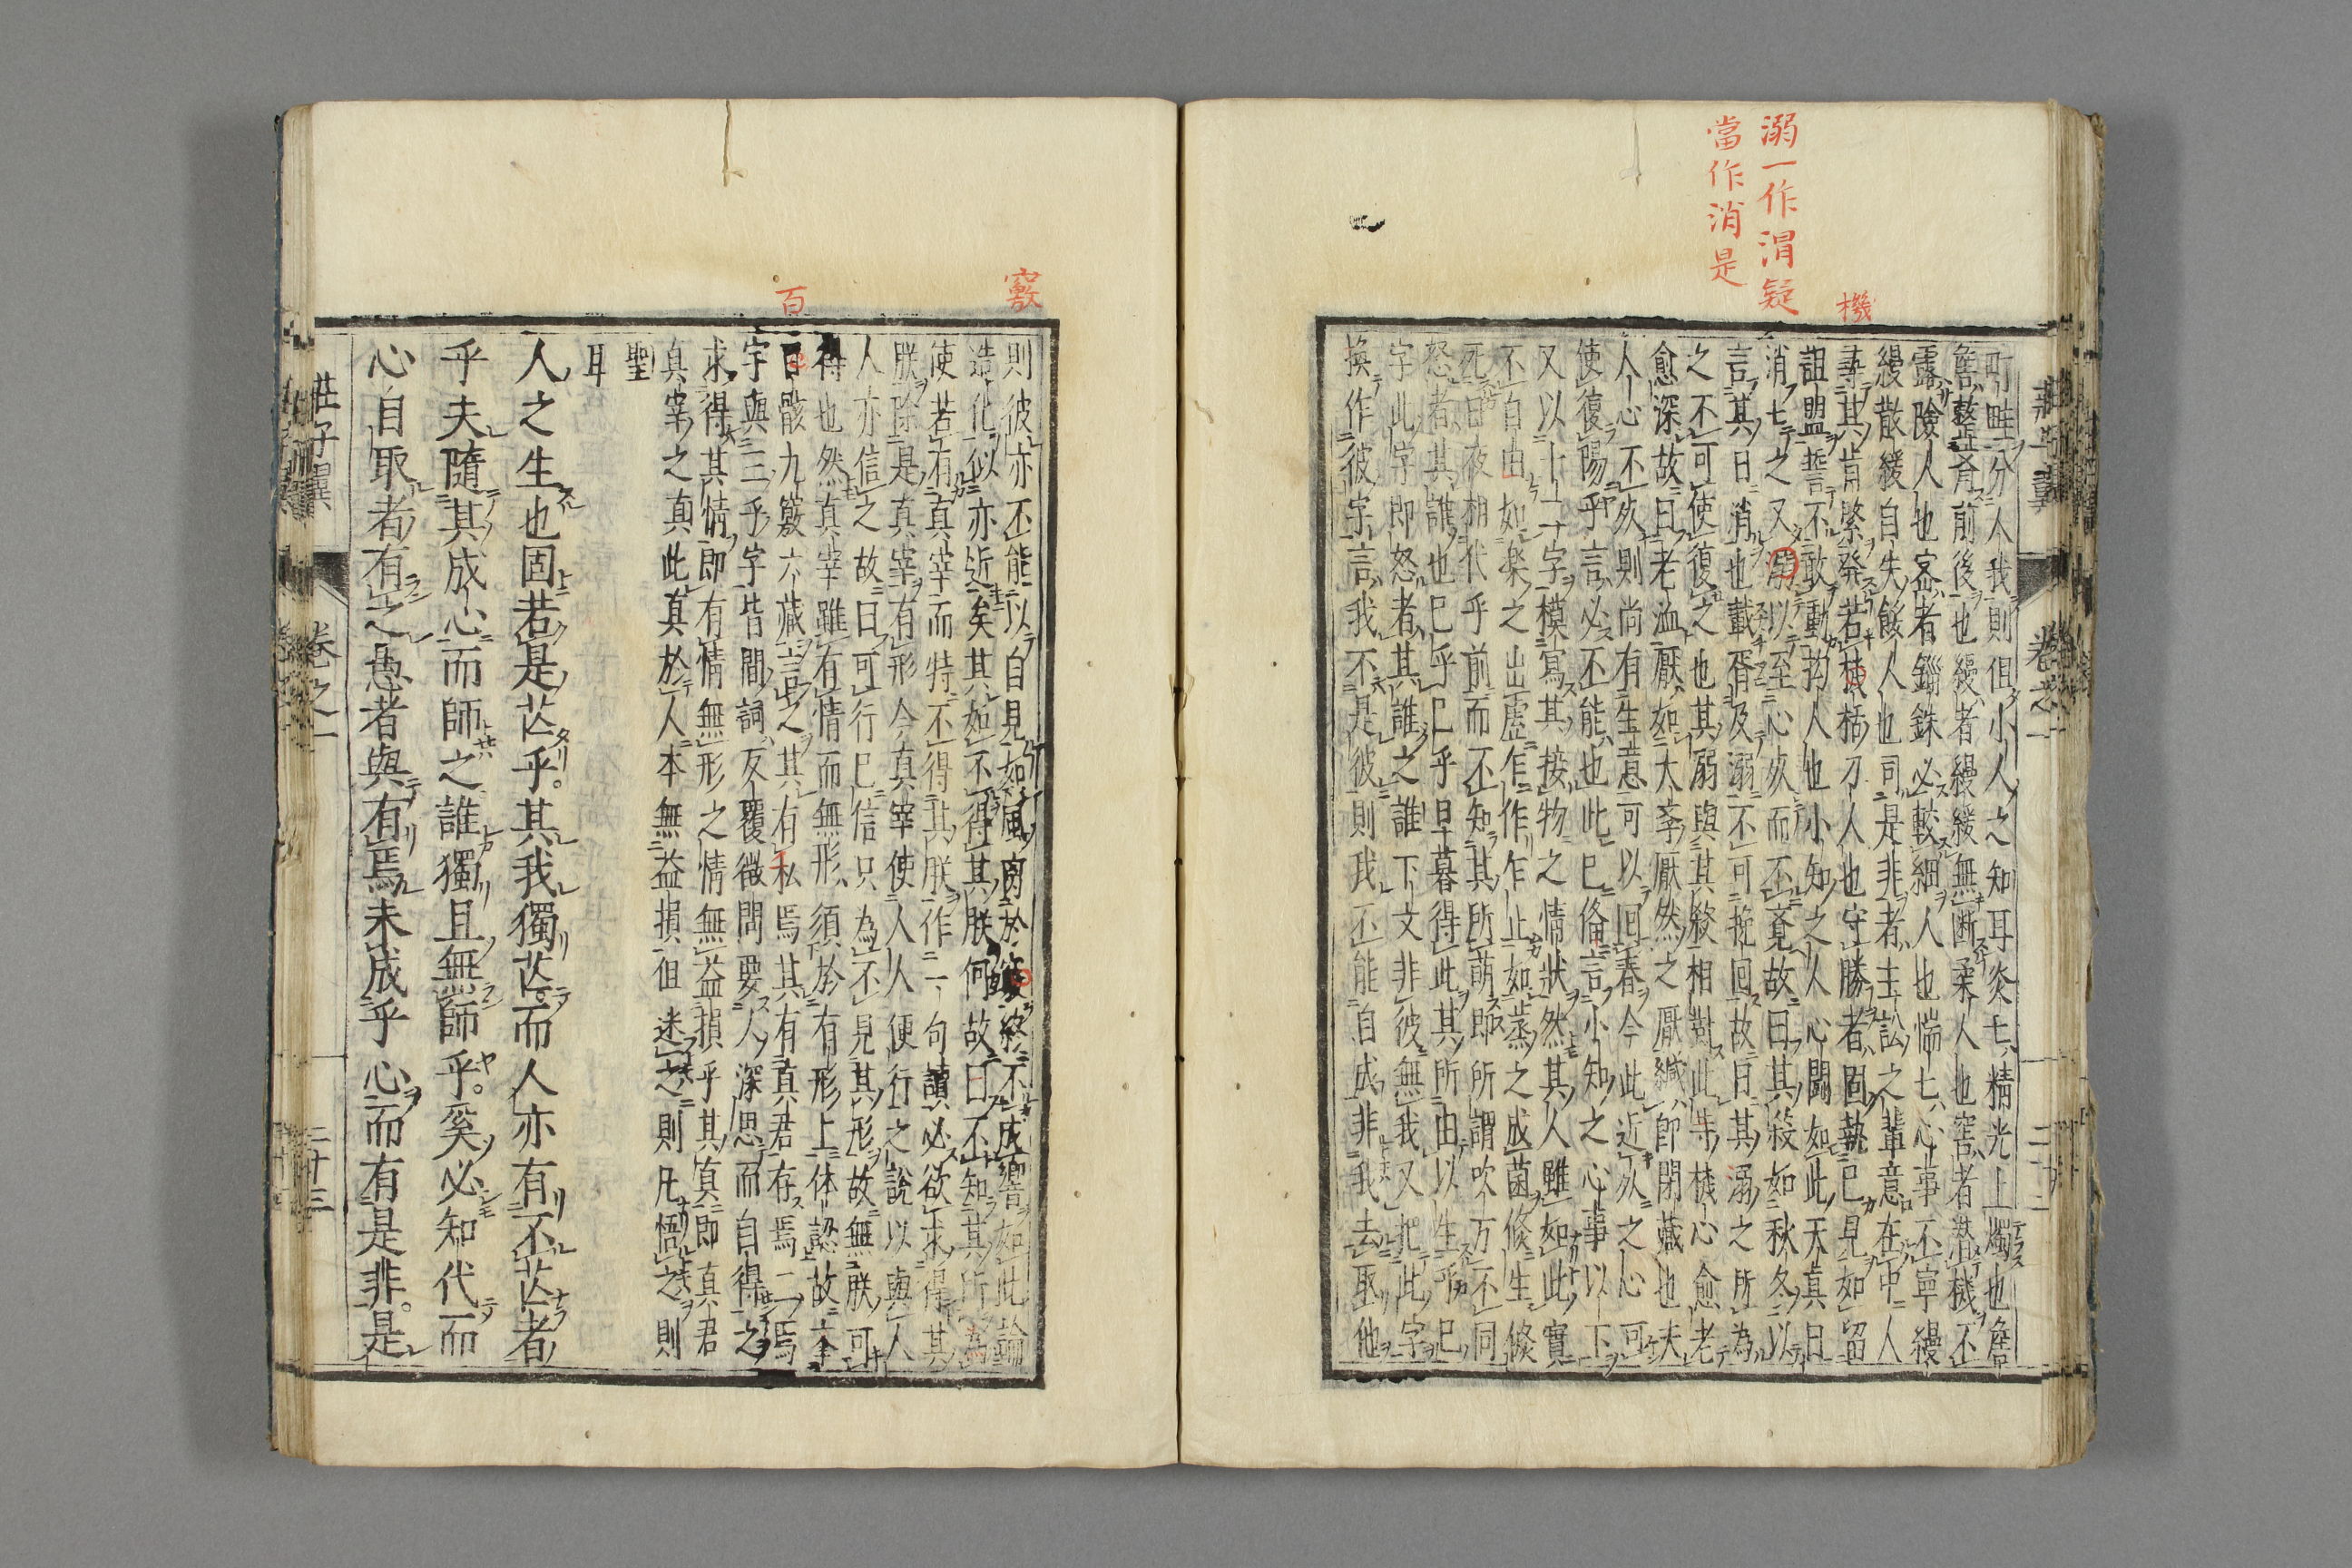 溺一作涓疑
當作消是
機
町畦分人我則但小人之知耳炎七精光上燭也詹
詹整脊前後也縵者縵緩無断柔人也窖者潜機不
露險人也密者錙銖必較細人也惴七心事不寧縵
縵散緩自失餒人也司是非者主訟之輩意在中人
尋其肯綮發若機栝刁人也守勝者固執已見如留
詛盟誓不敢動拘人也小知之人心鬪如此天真日
消七之又溺以至心死而不覚故曰其殺如秋冬以
言其日消也載胥及溺不可挽回故曰其溺之所為
之不可使復之也其溺與其殺相對此等機心愈老
愈深故曰老洫厭如大葬厭然之厭緘即閉藏也夫
人心不死則尚有生意可以回春今此近死之心可
使復陽乎言必不能也此已俻言小知之心事以下
又以十二字模寫其接物之情狀然其人雖如此實
不自由如楽之出虛乍作乍止如蒸之成菌倏生倏
死日夜相代乎前而不知其所萌即所謂吹万不同
怒者其誰也已乎已乎旦暮得此其所由以生乎已
字此字即怒者其誰之誰下文非彼無我又把此字
換作彼字言我不是彼則我不能自成非我去取他
竅
百
則彼亦不能以自見如風肉於竅終不成響如此論
造化似亦近矣其如不得其朕何故曰不知其所為
使若有真宰而特不得其朕作一句讀必欲求得其
朕除是真宰有形今真宰使人人便行之說以與人
人亦信之故曰可行已信只為不見其形故無朕可
得也然真宰雖有情而無形須於有形上体認故拿
日骸九竅六藏言之其有私焉其有真君存焉二焉
字與三乎字皆間詞反覆微問要人深思而自得之
求得其情即有情無形之情無益損乎其真即真君
真宰之真此真於人本無益損但迷之則凡悟之則
聖
耳
人之生也固若是芒乎其我獨芒而人亦有不芒者
乎夫隨其成心而師之誰獨且無師乎奚必知代而
心自取者有之愚者與有焉未成乎心而有是非是
莊子翼
卷之一
二十三